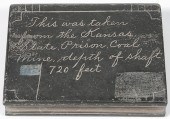 This was taken
from the Kansas
State Prison Coal
Mine, depth of shaft
720 feet